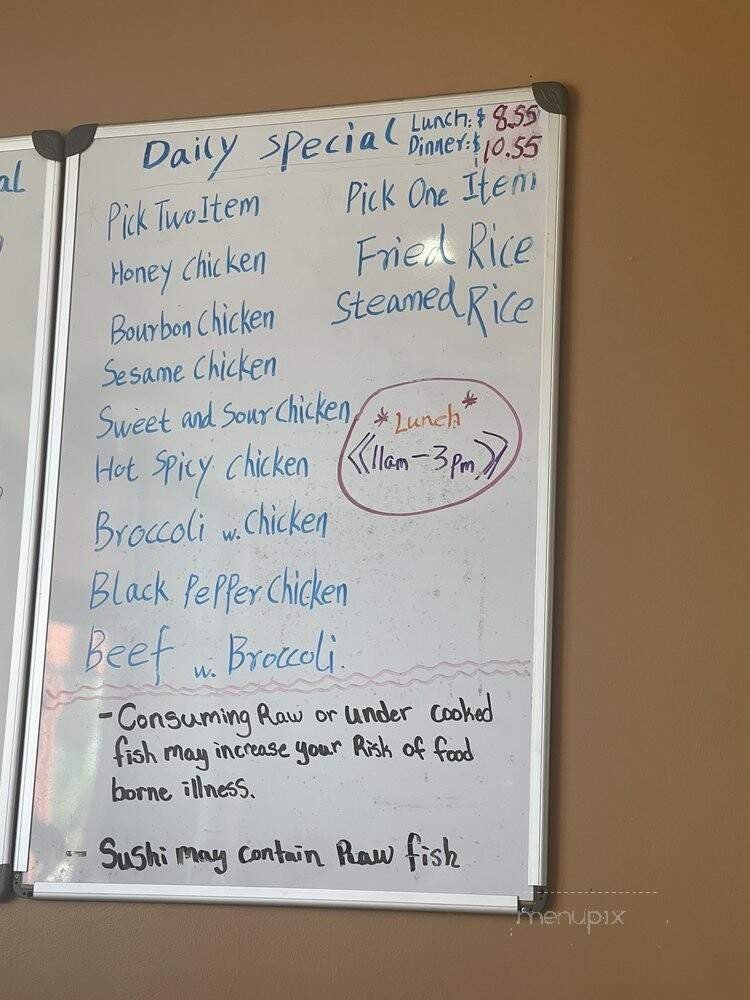 al
Daily Special
Lunch: $ 8.55
Dinner: $ 10.55
Pick Two Item
Honey Chicken
Bourbon Chicken
Sesame Chicken
Sweet and Sour Chicken
Hot Spicy Chicken
Broccoli w. Chicken
Black Pepper Chicken
Beef w. Broccoli.
Pick One Item
Fried Rice
Steamed Rice
* Lunch *
《11am-3pm》
- Consuming Raw or under cooked
fish may increase your Risk of food
borne illness.
- Sushi may contain Raw fish
menupix